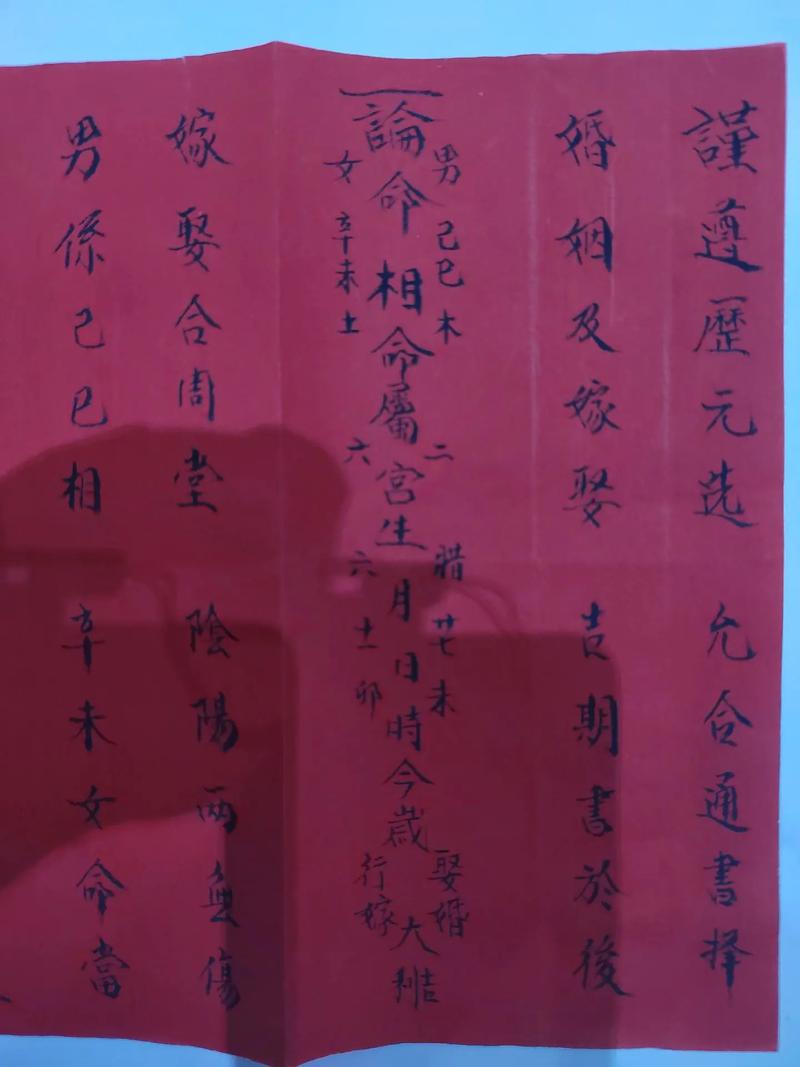 謹遵歷元选 允合通書择
婚姻及嫁娶 吉期書於後
男己巳木 二 腊 廿七 未 娶婚
一論命相命屬宮生月日時今歲大利吉
女辛未土 六 六 十一 卯 行嫁
嫁娶合周堂 陰陽两無傷
男係己巳相 辛未女命當